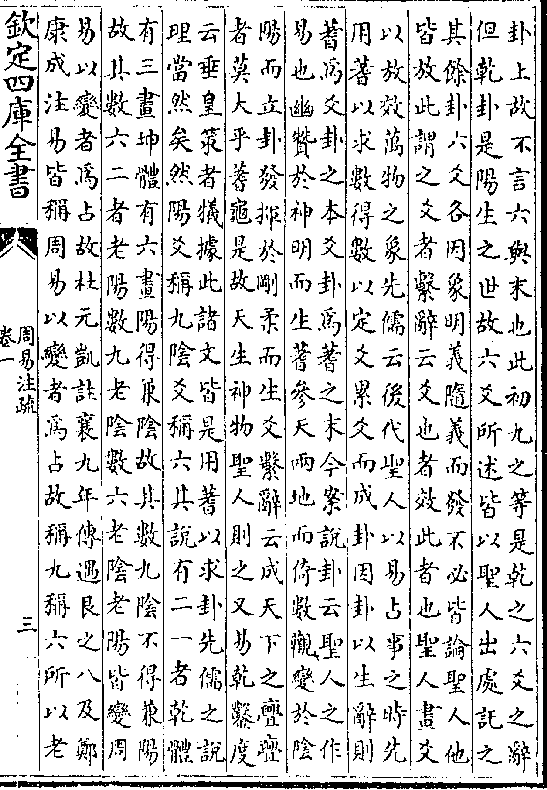 卦上故不言六與末也此初九之等是乾之六爻之辭
但乾卦是陽生之世故六爻所述皆以聖人出處託之
其餘卦六爻各因象明義隨義而發不必皆論聖人他
皆放此謂之爻者繫辭云爻也者效此者也聖人畫爻
以放效萬物之象先儒云後代聖人以易占事之時先
用蓍以求數得數以定爻累爻而成卦因卦以生辭則
蓍為爻卦之本爻卦為蓍之末今案說卦云聖人之作
易也幽贊於神明而生蓍參天兩地而倚數觀變於陰
陽而立卦發揮於剛柔而生爻繫辭云成天下之亹亹
者莫大乎蓍龜是故天生神物聖人則之又易乾鑿度
云垂皇策者犧據此諸文皆是用蓍以求卦先儒之說
理當然矣然陽爻稱九陰爻稱六其說有二一者乾體
有三畫坤體有六畫陽得兼陰故其數九陰不得兼陽
故其數六二者老陽數九老陰數六老陰老陽皆變周
易以變者為占故杜元凱註襄九年傳遇艮之八及鄭
康成注易皆稱周易以變者為占故稱九稱六所以老
欽定四庫全書
周易注疏
卷一
三